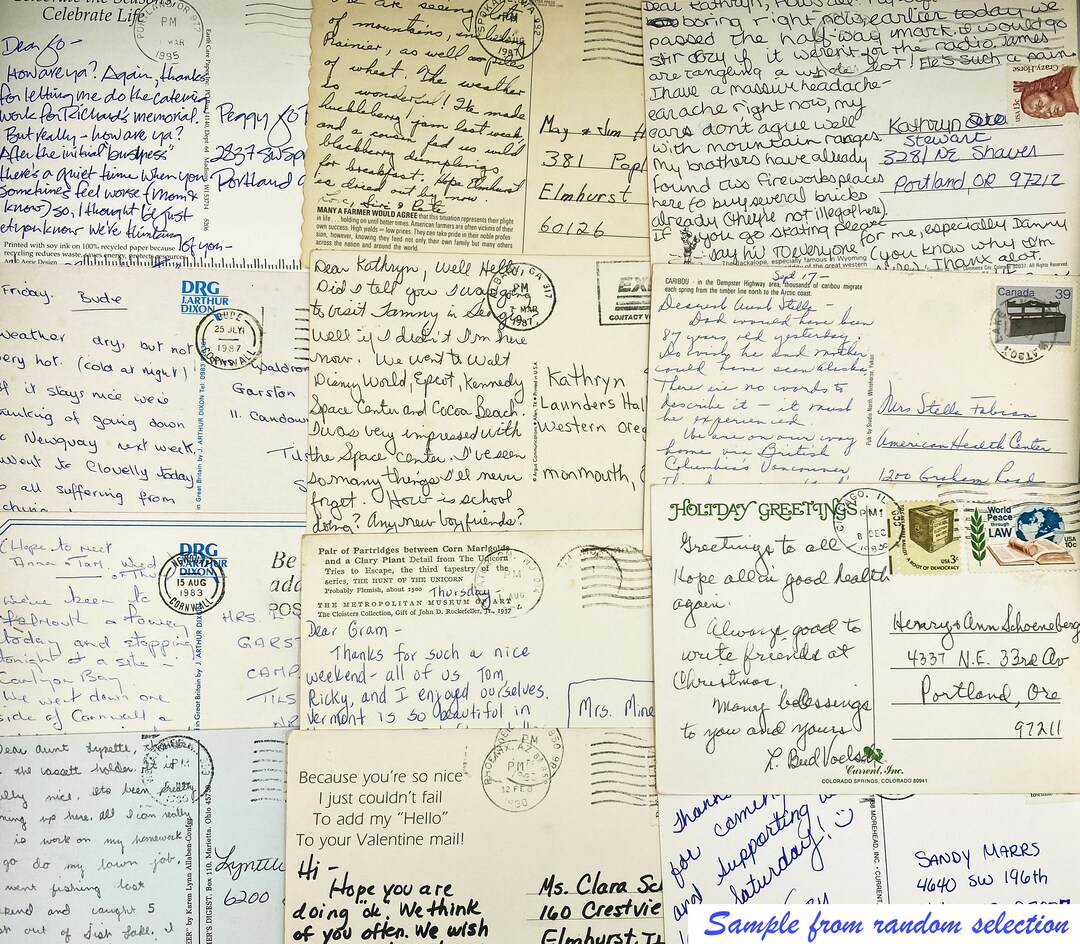 Celebrate Life
PM
MAR
1995
Dear Jo-
How are ya? Again, thanks
for letting me do the catering
work for Richard's memorial.
But really - how are ya?
After the initial "business"
there's a quiet time when you
sometimes feel worse (mom &
know) so, I thought I'd just
let you know we're thinking
of you-
Printed with soy ink on 100% recycled paper because
recycling reduces waste, saves energy, protects
Peggy Jo
2837 SW Sp
Portland
are seeing
of mountains, including
Rainier, as well as
of wheat. The weather
is wonderful! He made
huckleberry jam last week
and a cousin fed us wild
blackberry dumplings
for breakfast. Hope Elmhurst
is dried out by now.
MANY A FARMER WOULD AGREE that this situation represents their plight
in life . . . holding on until better times. American farmers are often victims of their
own success. High yields = low prices. They can take pride in their noble profes-
sion, however, knowing they feed not only their own family but many others
across the nation and around the world.
PM
1987
May & Jim H
381 Popl
Elmhurst
60126
Dear Kathryn,
boring right now, earlier today we
passed the half-way mark. I would go
stir crazy if it weren't for the radio. James
are rangling a whole lot! He's such a pain.
I have a massive headache
earache right now, my
ears don't agree well
with mountain ranges.
My brothers have already
found two fireworks places
here to buy several bricks
already (they're not illegal here).
If you go skating please
say hi to everyone for me, especially Danny
(you know why I'm
Thanx alot.
The Jackalope, especially famous in Wyoming
of the great western
Crazy Horse
USA 13c
Kathryn
Stewart
3281 NE Shaver
Portland, OR 97212
Friday. Bude
weather dry, but not
very hot. (cold at night)
If it stays nice we're
thinking of going down
to Newquay next week.
Went to Clovelly today
all suffering from
DRG
J.ARTHUR
DIXON
BUDE
25 JLY
1987
CORNWALL
in Great Britain by J. ARTHUR DIXON Tel: 0983
Waldron
Garston
11. Candow
Tils
Dear Kathryn, Well Hello,
Did I tell you I was going
to visit Tammy in
Well if I didn't I'm here
now. We went to Walt
Disney World, Epcot, Kennedy
Space Center and Cocoa Beach.
I was very impressed with
the Space Center. I've seen
so many things I'll never
forget. How is school
doing? Any new boyfriends?
GA 317
PM
MAR
1987
Printed in U.S.A.
CONTACT
Kathryn
Launders Hal
Western Oreg
monmouth,
CARIBOU - in the Dempster Highway area, thousands of caribou migrate
each spring from the timber line north to the Arctic coast.
Sept 17-
Dearest Aunt Stella-
Dad would have been
87 years old yesterday.
Do wish he and mother
could have seen Alaska.
There is no words to
describe it - it must
be experienced.
We are on our way
home via British
Columbia's Vancouver
Canada 39
Mrs Stella Fabian
American Health Center
1200 Graham Road
(Hope to meet
Anna & Tarl. Wed
or Thu
We've been to
Falmouth & Fowey
today and stopping
tonight at a site -
Carlyon Bay.
We went down one
side of Cornwall &
DRG
DIXON
15 AUG
1983
CORNWALL
in Great Britain by J. ARTHUR DIXON
Be
add
POS
MRS.
GARST
CAMP
TILS
Pair of Partridges between Corn Marigolds
and a Clary Plant Detail from The Unicorn
Tries to Escape, the third tapestry of the
series, THE HUNT OF THE UNICORN
Probably Flemish, about 1500
THE METROPOLITAN MUSEUM OF ART
The Cloisters Collection, Gift of John D. Rockefeller, Jr., 1937
Thursday
PM
AUG
Dear Gram -
Thanks for such a nice
weekend - all of us Tom,
Ricky, and I enjoyed ourselves.
Vermont is so beautiful in
Mrs. Mine
HOLIDAY GREETINGS
CHICAGO, IL
PM
8
DEC
Greetings to all
Hope all in good health
again.
Always good to
write friends at
Christmas.
Many blessings
to you and yours
L. Bud Voels
Current, Inc.
COLORADO SPRINGS, COLORADO 80941
A ROOT OF DEMOCRACY
USA 3c
World
Peace
through
LAW
USA
10c
Henry & Ann Schoeneberg
4337 N.E. 33rd Av
Portland, Ore
97211
Dear Aunt Lynette,
the cassett holder. It is
really nice. Its been pretty
up here. all I can really
is work on my homework
go do my lawn job,
went fishing last
and caught 5
out of Fish Lake. I
by Karen Lynn Allaben-Confer
DIGEST. Box 110. Marietta, Ohio 45750
Lynette
6200
Because you're so nice
I just couldn't fail
To add my "Hello"
To your Valentine mail!
PHOENIX, AZ
PM
12 FEB
1990
Hi -
Hope you are
doing "ok". We think
of you often. We wish
Ms. Clara Sc
160 Crestvie
Elmhurst, Il
Thanks
for coming
and supporting
Saturday!
MOREHEAD, INC
SANDY MARRS
4640 SW 196th
Sample from random selection